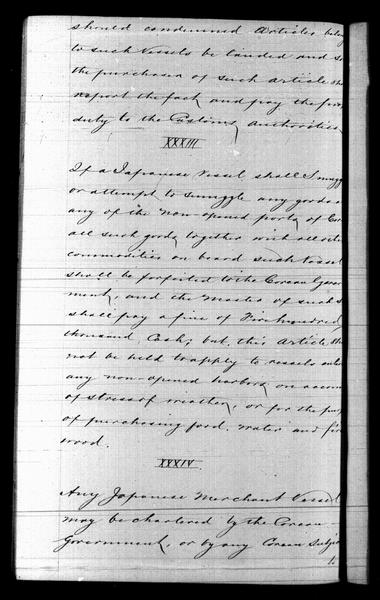 should condemned articles belong
to such vessels be landed and so
the purchaser of such article sha
report the fact, and pay the pro
duty to the Customs, Authorities
XXXIII
If a Japanese Vessel shall Smugg
or attempt to smuggle any goods
any of the non-opened ports of Cor
all such goods, together with all othe
commodities on board such Vessel
shall be forfeited to the Corean Govern
ment, and the master of such s
shall pay a fine of Five hundred
thousand Cash; but, this article sha
not be held to apply to vessels ente
any non-opened harbors, on accoun
of stress of weather, or for the purp
of purchasing food, water and fire
wood.
XXXIV.
Any Japanese Merchant Vessel
may be chartered by the Corean
Government, or by any Corean Subjec